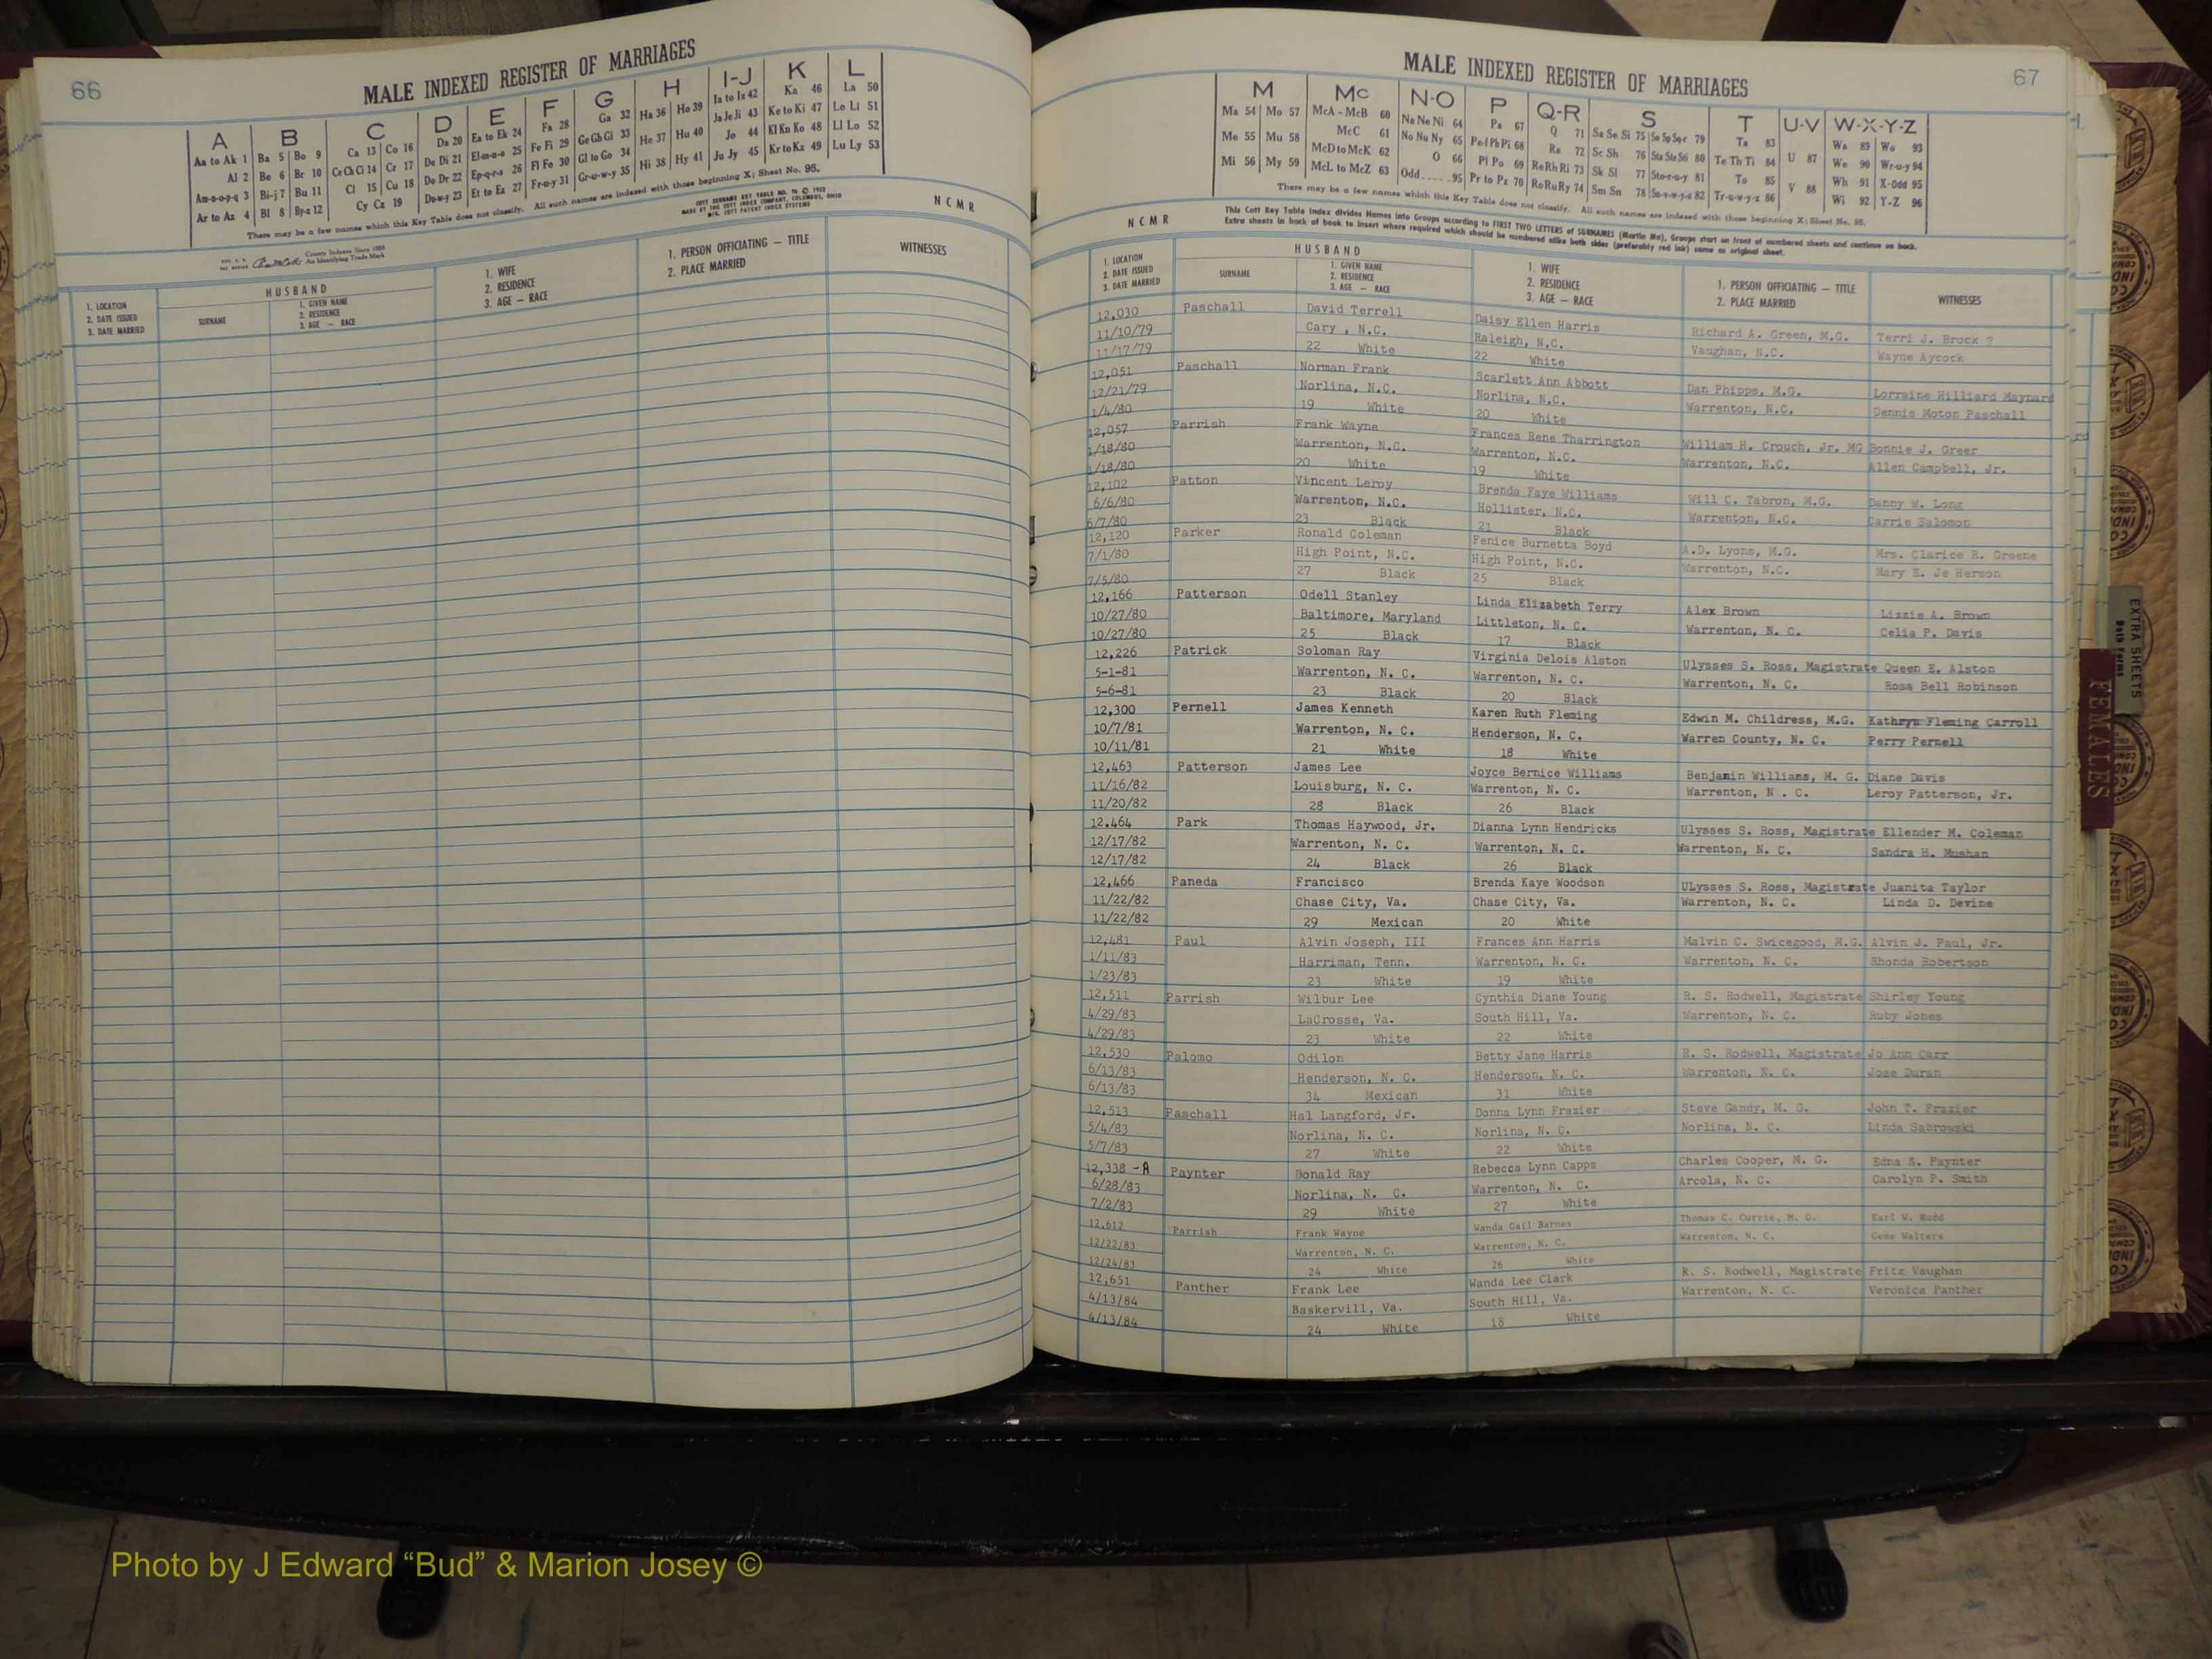 66
MALE INDEXED REGISTER OF MARRIAGES
A B C D E F G H I-J K L
Aa to Ak 1 Ba 5 Bo 9 Ca 13 Co 16 Da 20 Ea to Ek 24 Fa 28 Ga 32 Ha 36 Ho 39 Ia to Iz 42 Ka 46 La 50
Al 2 Be 6 Br 10 Ce Ch Ci 14 Cr 17 De Di 21 El-m-n-o 25 Fe Fi 29 Ge Gh Gi 33 He 37 Hu 40 Ja Je Ji 43 Ke to Ki 47 Le Li 51
Am-n-o-p-q 3 Bi-j 7 Bu 11 Cl 15 Cu 18 Do Dr 22 Ep-q-r-s 26 Fl Fo 30 Gl to Go 34 Hi 38 Hy 41 Jo 44 Kl Kn Ko 48 Ll Lo 52
Ar to Az 4 Bl 8 By-z 12 Cy Cz 19 Du-w-y 23 Et to Ex 27 Fr-u-y 31 Gr-u-w-y 35 Ju Jy 45 Kr to Kz 49 Lu Ly 53
There may be a few names which this Key Table does not classify. All such names are indexed with those beginning X; Sheet No. 95.
NCMR
County Indexes Since 1888
An Identifying Trade Mark
HUSBAND
1. LOCATION
2. DATE ISSUED
3. DATE MARRIED
SURNAME
1. GIVEN NAME
2. RESIDENCE
3. AGE — RACE
1. WIFE
2. RESIDENCE
3. AGE — RACE
1. PERSON OFFICIATING — TITLE
2. PLACE MARRIED
WITNESSES
MALE INDEXED REGISTER OF MARRIAGES
67
M Mc N-O P Q-R S T U-V W-X-Y-Z
Ma 54 Mo 57 McA - McB 60 Na Ne Ni 64 Pa 67 Q 71 Sa Se Si 75 So Sp Sq-r 79 Ta 83 U 87 Wa 89 Wo 93
Me 55 Mu 58 McC 61 No Nu Ny 65 Pe-f Ph Pi 68 Ra 72 Sc Sh 76 Sta Ste Sti 80 Te Th Ti 84 V 88 We 90 Wr-u-y 94
Mi 56 My 59 McD to McK 62 O 66 Pl Po 69 Re Rh Ri 73 Sk Sl 77 Sto-r-u-y 81 To 85 Wh 91 X-Odd 95
McL to McZ 63 Odd 95 Pr to Pz 70 Ro Ru Ry 74 Sm Sn 78 Su-v-w-y-z 82 Tr-u-w-y-z 86 Wi 92 Y-Z 96
There may be a few names which this Key Table does not classify. All such names are indexed with those beginning X; Sheet No. 95.
NCMR
This Cott Key Table Index divides Names into Groups according to FIRST TWO LETTERS of SURNAMES (Martin Ma), Groups start on front of numbered sheets and continue on back.
Extra sheets in back of book to insert where required which should be numbered alike both sides (preferably red ink) same as original sheet.
HUSBAND
1. LOCATION
2. DATE ISSUED
3. DATE MARRIED
SURNAME
1. GIVEN NAME
2. RESIDENCE
3. AGE — RACE
1. WIFE
2. RESIDENCE
3. AGE — RACE
1. PERSON OFFICIATING — TITLE
2. PLACE MARRIED
WITNESSES
12,030 Paschall David Terrell Daisy Ellen Harris Richard A. Green, M.G. Terri J. Brock ?
11/10/79 Cary , N.C. Raleigh, N.C. Vaughan, N.C. Wayne Aycock
11/17/79 22 White 22 White
12,051 Paschall Norman Frank Scarlett Ann Abbott Dan Phipps, M.G. Lorraine Hilliard Maynard
12/21/79 Norlina, N.C. Norlina, N.C. Warrenton, N.C. Dennis Moton Paschall
1/4/80 19 White 20 White
12,057 Parrish Frank Wayne Frances Rene Tharrington William H. Crouch, Jr. MG Bonnie J. Greer
1/18/80 Warrenton, N.C. Warrenton, N.C. Warrenton, N.C. Allen Campbell, Jr.
1/18/80 20 White 19 White
12,102 Patton Vincent Leroy Brenda Faye Williams Will C. Tabron, M.G. Danny W. Long
6/6/80 Warrenton, N.C. Hollister, N.C. Warrenton, N.C. Carrie Salomon
6/7/80 23 Black 21 Black
12,120 Parker Ronald Coleman Fenice Burnetta Boyd A.D. Lyons, M.G. Mrs. Clarice R. Greene
7/1/80 High Point, N.C. High Point, N.C. Warrenton, N.C. Mary E. Je Herson
7/5/80 27 Black 25 Black
12,166 Patterson Odell Stanley Linda Elizabeth Terry Alex Brown Lizzie A. Brown
10/27/80 Baltimore, Maryland Littleton, N. C. Warrenton, N. C. Celia P. Davis
10/27/80 25 Black 17 Black
12,226 Patrick Soloman Ray Virginia Delois Alston Ulysses S. Ross, Magistrate Queen E. Alston
5-1-81 Warrenton, N. C. Warrenton, N. C. Warrenton, N. C. Rosa Bell Robinson
5-6-81 23 Black 20 Black
12,300 Pernell James Kenneth Karen Ruth Fleming Edwin M. Childress, M.G. Kathryn Fleming Carroll
10/7/81 Warrenton, N. C. Henderson, N. C. Warren County, N. C. Perry Pernell
10/11/81 21 White 18 White
12,463 Patterson James Lee Joyce Bernice Williams Benjamin Williams, M. G. Diane Davis
11/16/82 Louisburg, N. C. Warrenton, N. C. Warrenton, N . C. Leroy Patterson, Jr.
11/20/82 28 Black 26 Black
12.464 Park Thomas Haywood, Jr. Dianna Lynn Hendricks Ulysses S. Ross, Magistrate Ellender M. Coleman
12/17/82 Warrenton, N. C. Warrenton, N. C. Warrenton, N. C. Sandra H. Mushan
12/17/82 24 Black 26 Black
12,466 Paneda Francisco Brenda Kaye Woodson ULysses S. Ross, Magistrate Juanita Taylor
11/22/82 Chase City, Va. Chase City, Va. Warrenton, N. C. Linda D. Devine
11/22/82 29 Mexican 20 White
12,481 Paul Alvin Joseph, III Frances Ann Harris Malvin C. Swicegood, M.G. Alvin J. Paul, Jr.
1/11/83 Harriman, Tenn. Warrenton, N. C. Warrenton, N. C. Rhonda Robertson
1/23/83 23 White 19 White
12,511 Parrish Wilbur Lee Cynthia Diane Young R. S. Rodwell, Magistrate Shirley Young
4/29/83 LaCrosse, Va. South Hill, Va. Warrenton, N. C. Ruby Jones
4/29/83 23 White 22 White
12,530 Palomo Odilon Betty Jane Harris R. S. Rodwell, Magistrate Jo Ann Carr
6/13/83 Henderson, N. C. Henderson, N. C. Warrenton, N. C. Jose Duran
6/13/83 34 Mexican 31 White
12,513 Paschall Hal Langford, Jr. Donna Lynn Frazier Steve Gandy, M. G. John T. Frazier
5/4/83 Norlina, N. C. Norlina, N. C. Norlina, N. C. Linda Sabrowski
5/7/83 27 White 22 White
12,338 -A Paynter Donald Ray Rebecca Lynn Capps Charles Cooper, M. G. Edna S. Paynter
6/28/83 Norlina, N. C. Warrenton, N. C. Arcola, N. C. Carolyn P. Smith
7/2/83 29 White 27 White
12,612 Parrish Frank Wayne Wanda Gail Barnes Thomas C. Currie, M. G. Earl W. Rudd
12/22/83 Warrenton, N. C. Warrenton, N. C. Warrenton, N. C. Gene Walters
12/24/83 24 White 26 White
12,651 Panther Frank Lee Wanda Lee Clark R. S. Rodwell, Magistrate Fritz Vaughan
4/13/84 Baskervill, Va. South Hill, Va. Warrenton, N. C. Veronica Panther
4/13/84 24 White 18 White
EXTRA SHEETS
FEMALES
Photo by J Edward “Bud” & Marion Josey ©